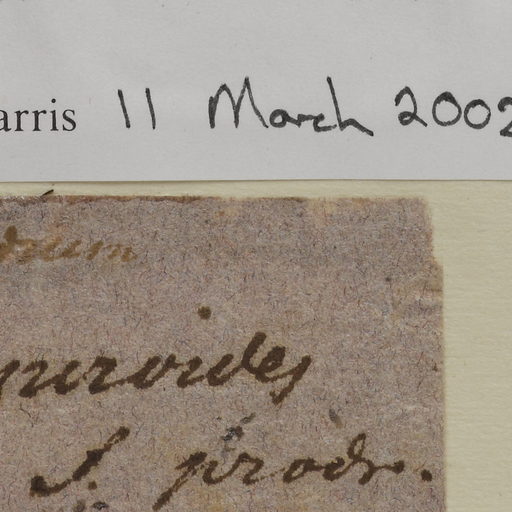 arris 11 March 2002
drum
yuroides
S. prodr.